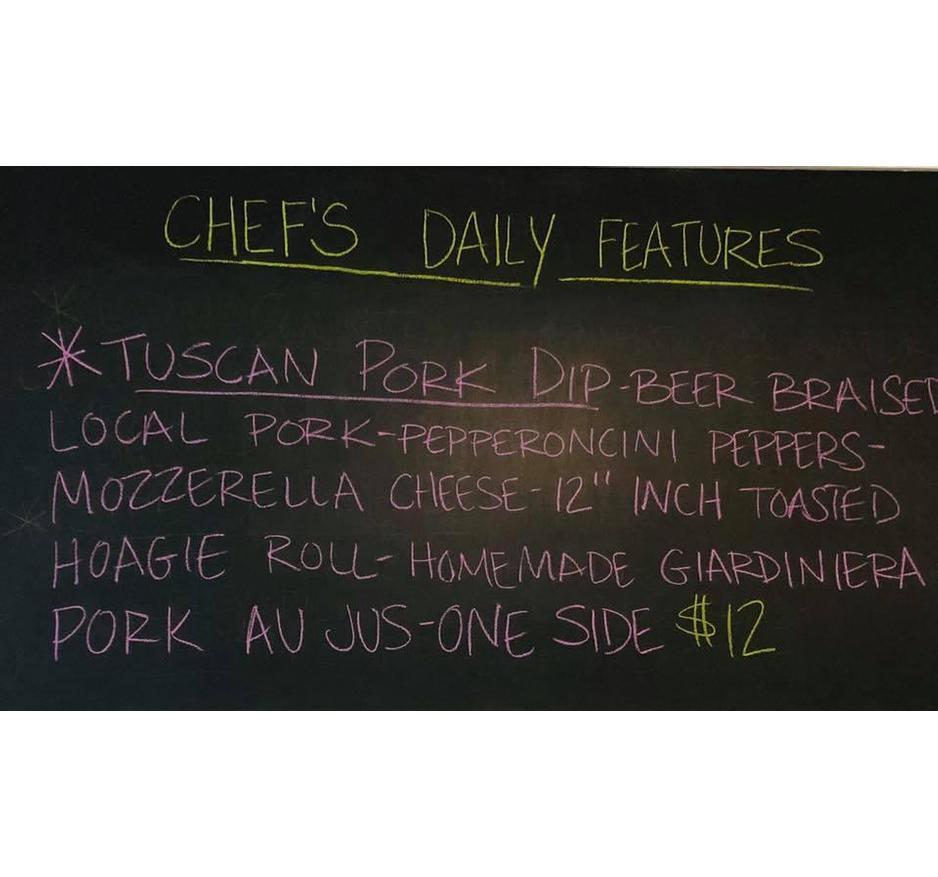 CHEF'S DAILY FEATURES
*TUSCAN PORK DIP-BEER BRAISED
LOCAL PORK-PEPPERONCINI PEPPERS-
MOZZERELLA CHEESE-12" INCH TOASTED
HOAGIE ROLL-HOMEMADE GIARDINIERA
PORK AU JUS-ONE SIDE $12